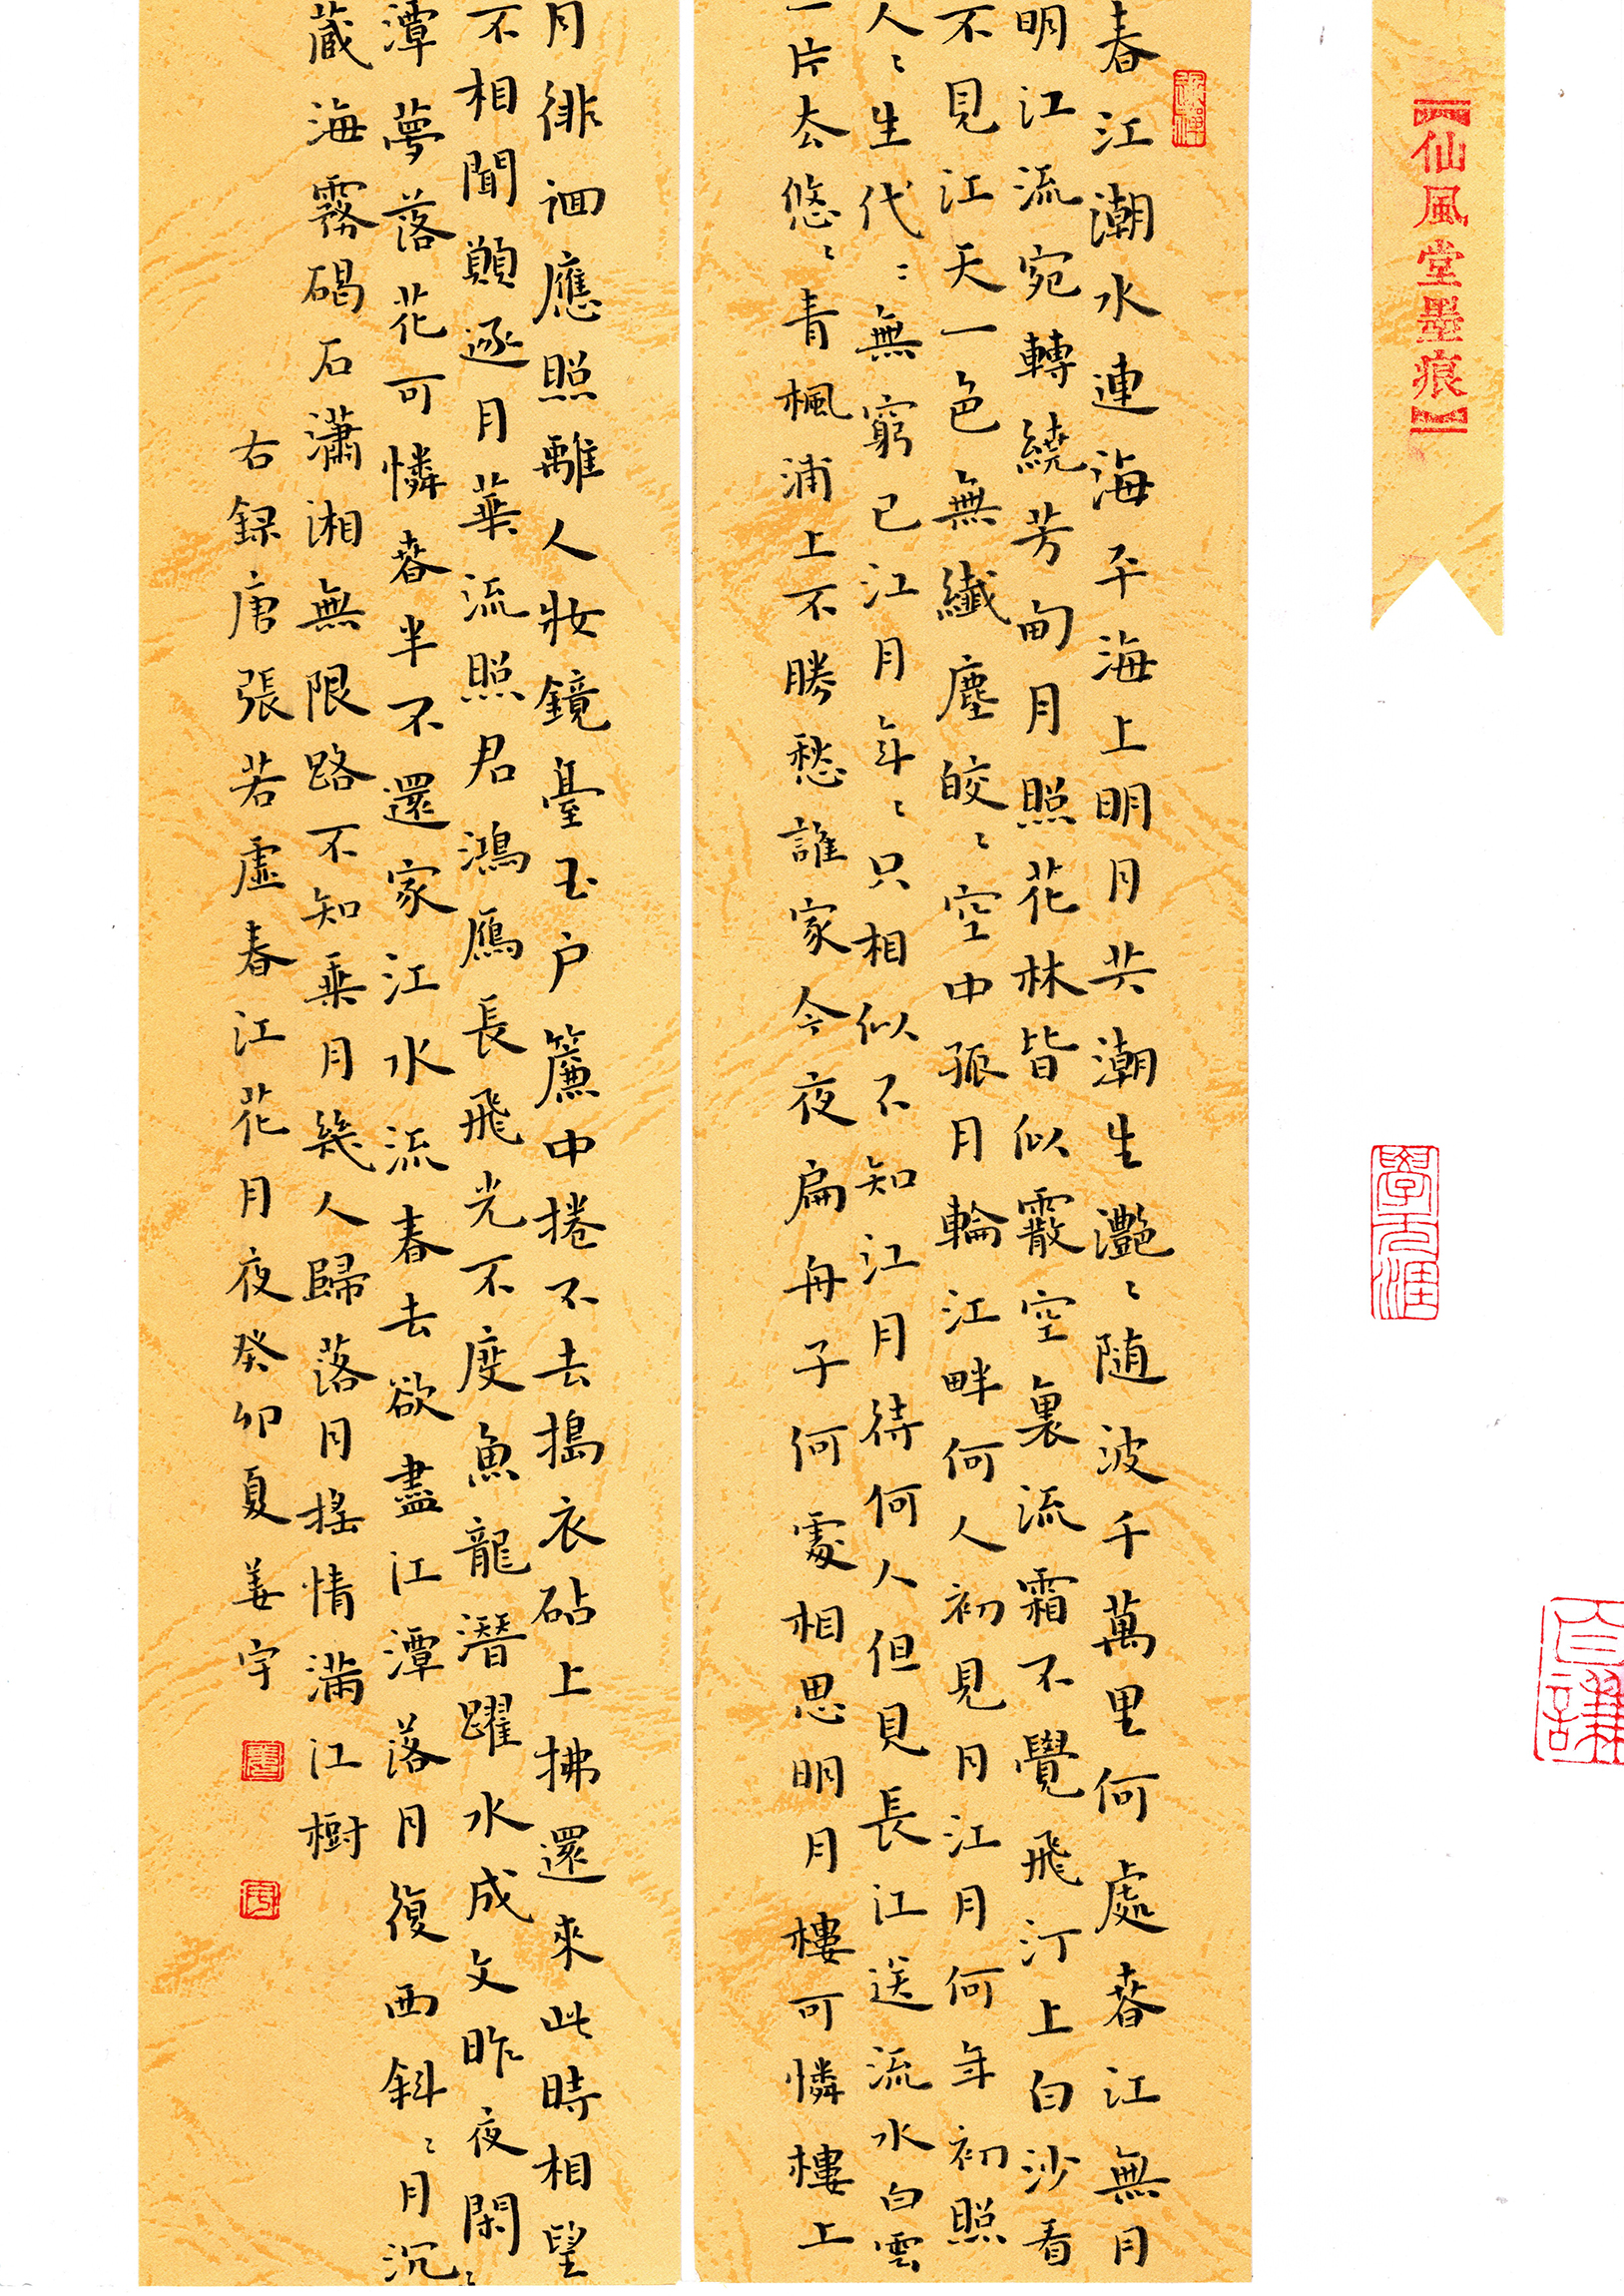 仙風堂墨痕
學无涯
春江潮水連海平海上明月共潮生灧〻随波千萬里何處春江無月
明江流宛轉繞芳甸月照花林皆似霰空裏流霜不覺飛汀上白沙看
不見江天一色無纖塵皎〻空中孤月輪江畔何人初見月江月何年初照
人〻生代〻無窮已江月年〻只相似不知江月待何人但見長江送流水白雲
一片去悠〻青楓浦上不勝愁誰家今夜扁舟子何處相思明月樓可憐樓上
月徘徊應照離人妝鏡臺玉户簾中捲不去搗衣砧上拂還來此時相望
不相聞願逐月華流照君鴻鴈長飛光不度魚龍潛躍水成文昨夜閑
潭夢落花可憐春半不還家江水流春去欲盡江潭落月復西斜〻月沉〻
藏海霧碣石瀟湘無限路不知乘月幾人歸落月摇情滿江樹
右録唐張若虛春江花月夜癸卯夏姜宇